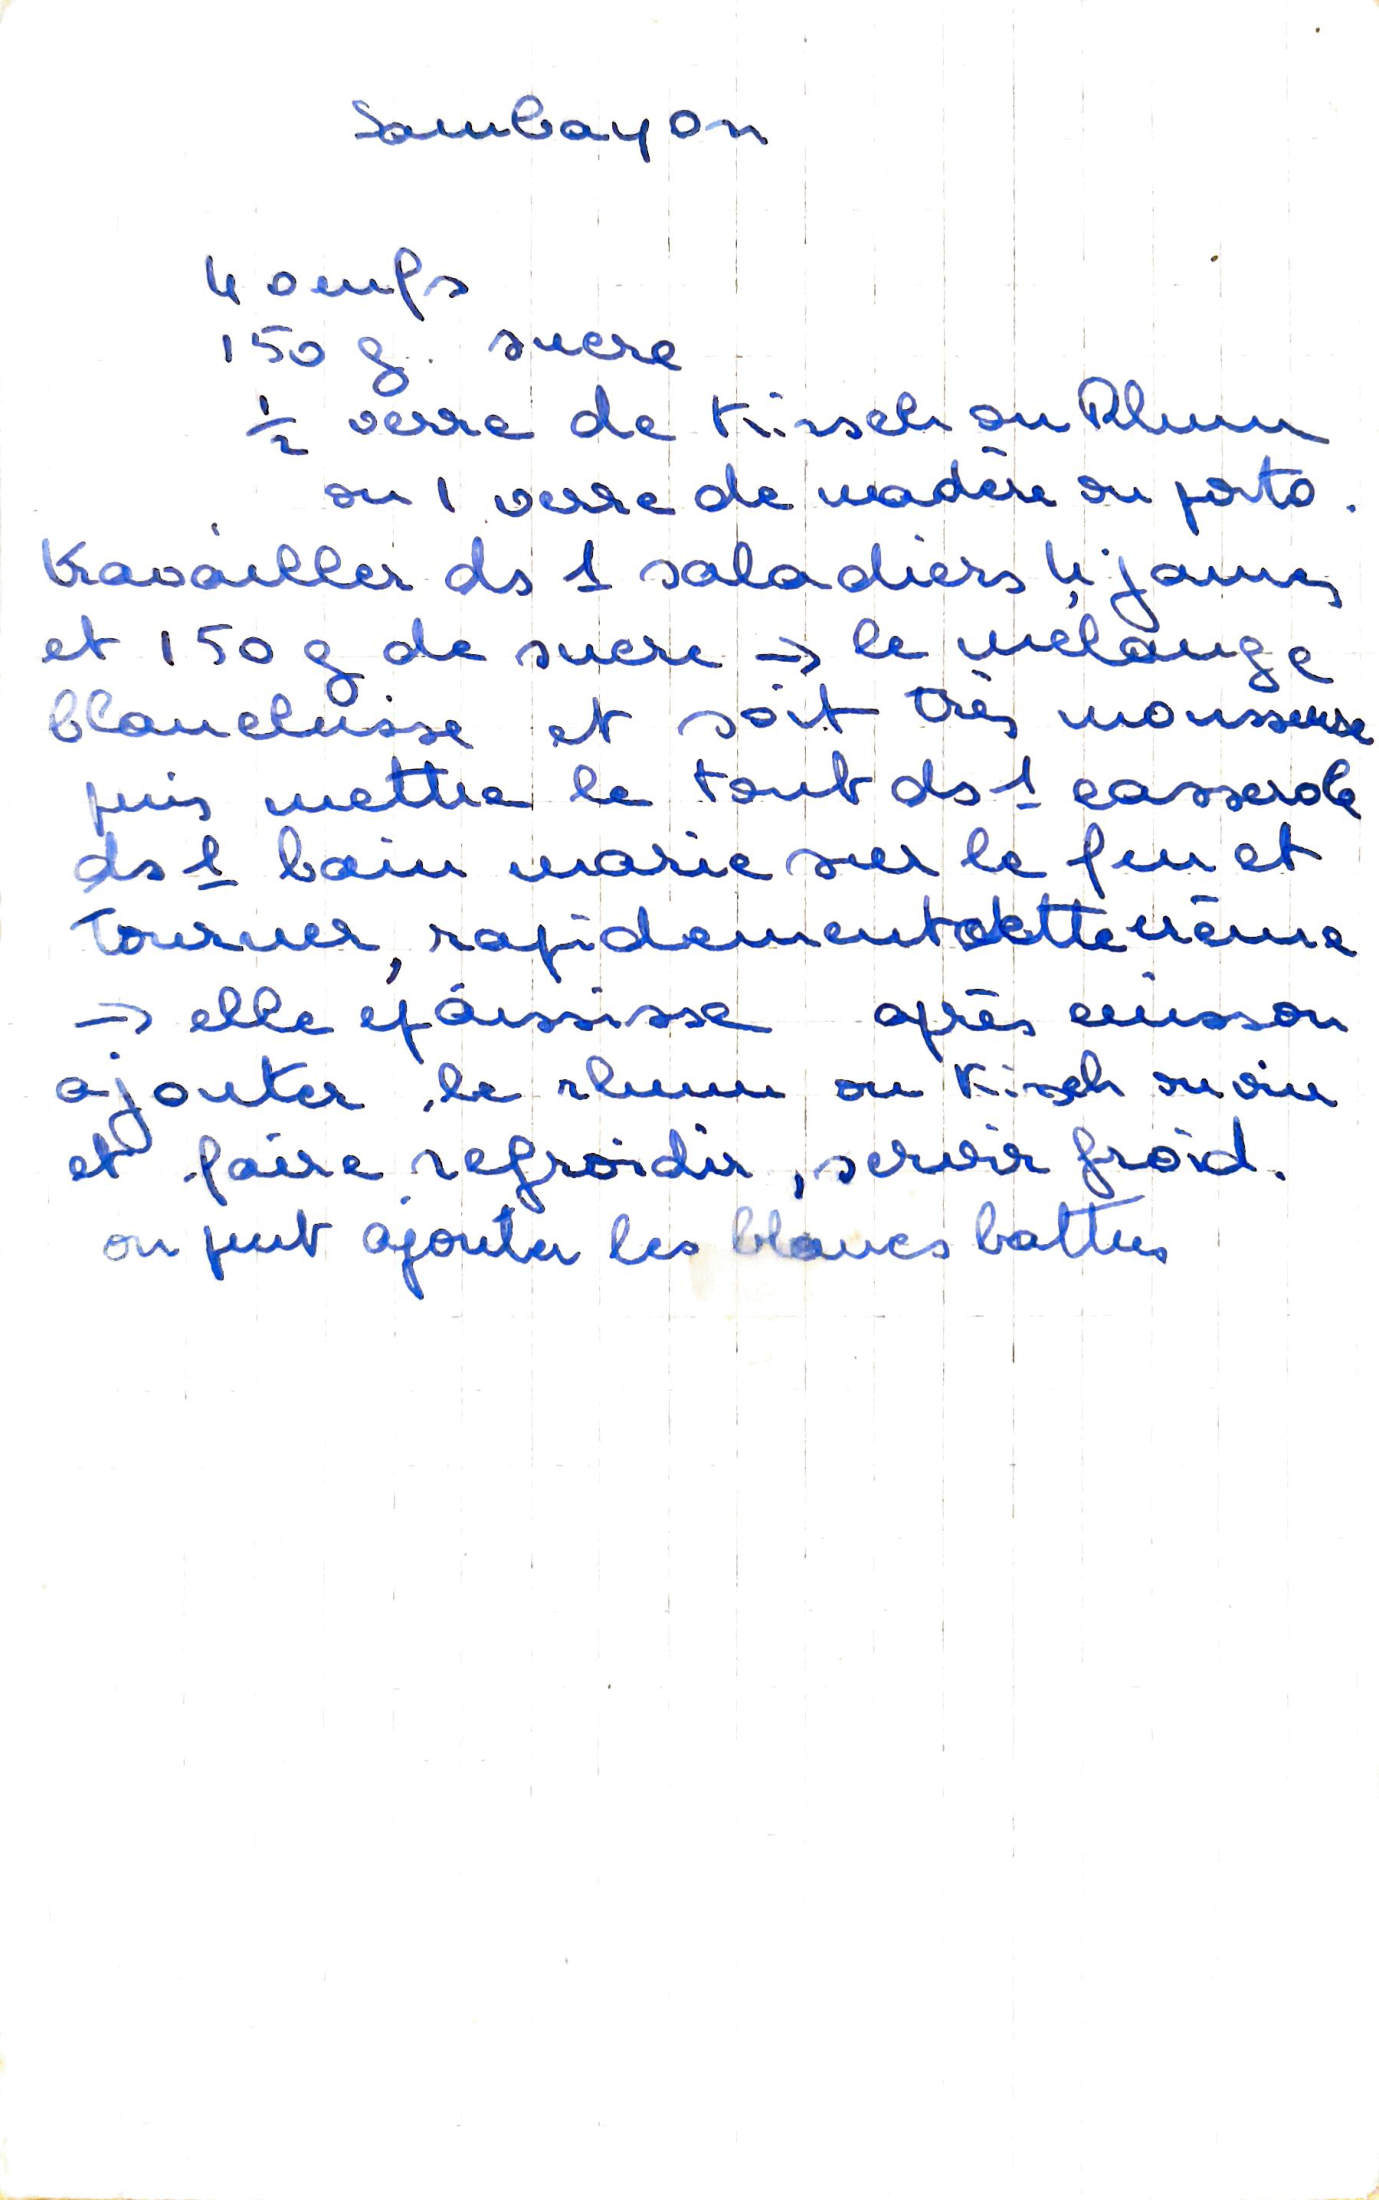 Sambayon
4 oeufs
150 g. sucre
½ verre de Kirsch ou Rhum
ou 1 verre de madère ou porto.
travailler ds 1 saladiers 4 jaunes
et 150 g de sucre → le mélange
blanchisse et soit très mousseuse
puis mettre le tout ds 1 casserole
ds 1 bain marie sur le feu et
tourner, rapidement cette crème
→ elle épaississe après cuisson
ajouter le rhum ou Kirsch ou vin
et faire refroidir, servir froid.
on peut ajouter les blancs battus